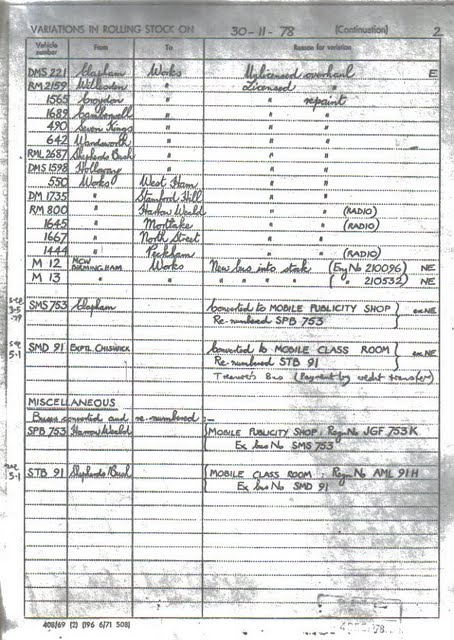 VARIATIONS IN ROLLING STOCK ON 30-11-78 (Continuation) 2
Vehicle number From To Reason for variation
DMS 221 Clapham Works Unlicensed overhaul E
RM 2159 Willesden " Licensed "
1565 Croydon " " repaint
1689 Camberwell " " "
490 Seven Kings " " "
642 Wandsworth " " "
RML 2687 Shepherds Bush " " "
DMS 1598 Holloway " " "
550 Works West Ham " "
DM 1735 " Stamford Hill " "
RM 800 " Harrow Weald " " (RADIO)
1645 " Mortlake " " (RADIO)
1667 " North Street " "
1444 " Peckham " " (RADIO)
M 12 MCW BIRMINGHAM Works New bus into stock (Eng No 210096) NE
M 13 " " " " " " ( " " 210532) NE
see 3-5-79 SMS 753 Clapham Converted to MOBILE PUBLICITY SHOP ex.NE
Re-numbered SPB 753
see 5-1 SMD 91 EXPTL CHISWICK Converted to MOBILE CLASS ROOM ex NE
Re-numbered STB 91
Bus (Payment by credit transfer)
MISCELLANEOUS
Buses converted and re-numbered:-
SPB 753 Harrow Weald MOBILE PUBLICITY SHOP. Reg. No JGF 753K
Ex bus No SMS 753
see 5-1 STB 91 Shepherds Bush MOBILE CLASS ROOM. Reg. No AML 91H
Ex bus No SMD 91
408/69 (2) (196 6/71 508)